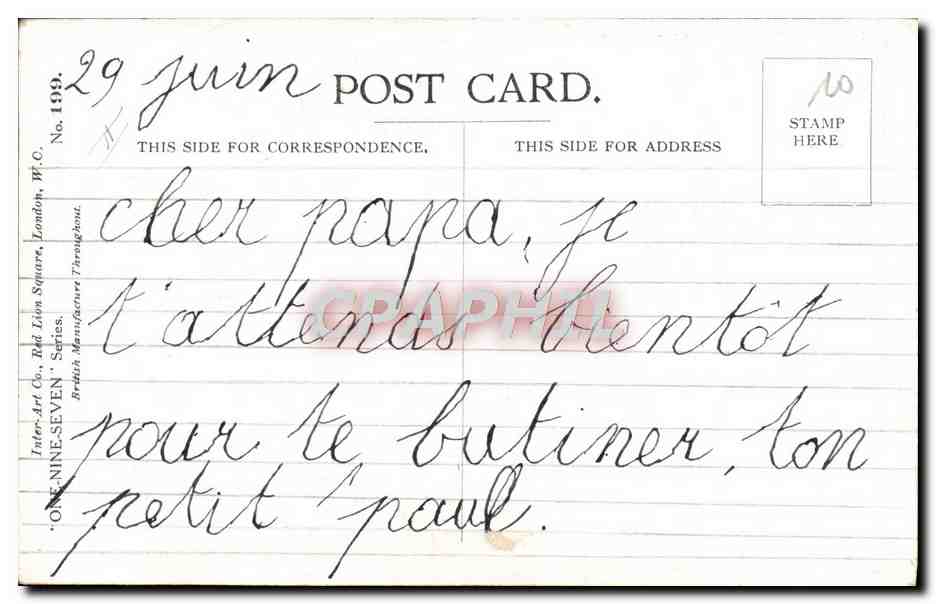 29 juin
POST CARD.
No. 199.
THIS SIDE FOR CORRESPONDENCE,
THIS SIDE FOR ADDRESS
STAMP
HERE
10
Inter-Art Co., Red Lion Square, London, W.C.
"ONE-NINE-SEVEN" Series.
British Manufacture Throughout.
cher papa, je
t'attends bientôt
pour te butiner, ton
petit paul.
CPAPHIL